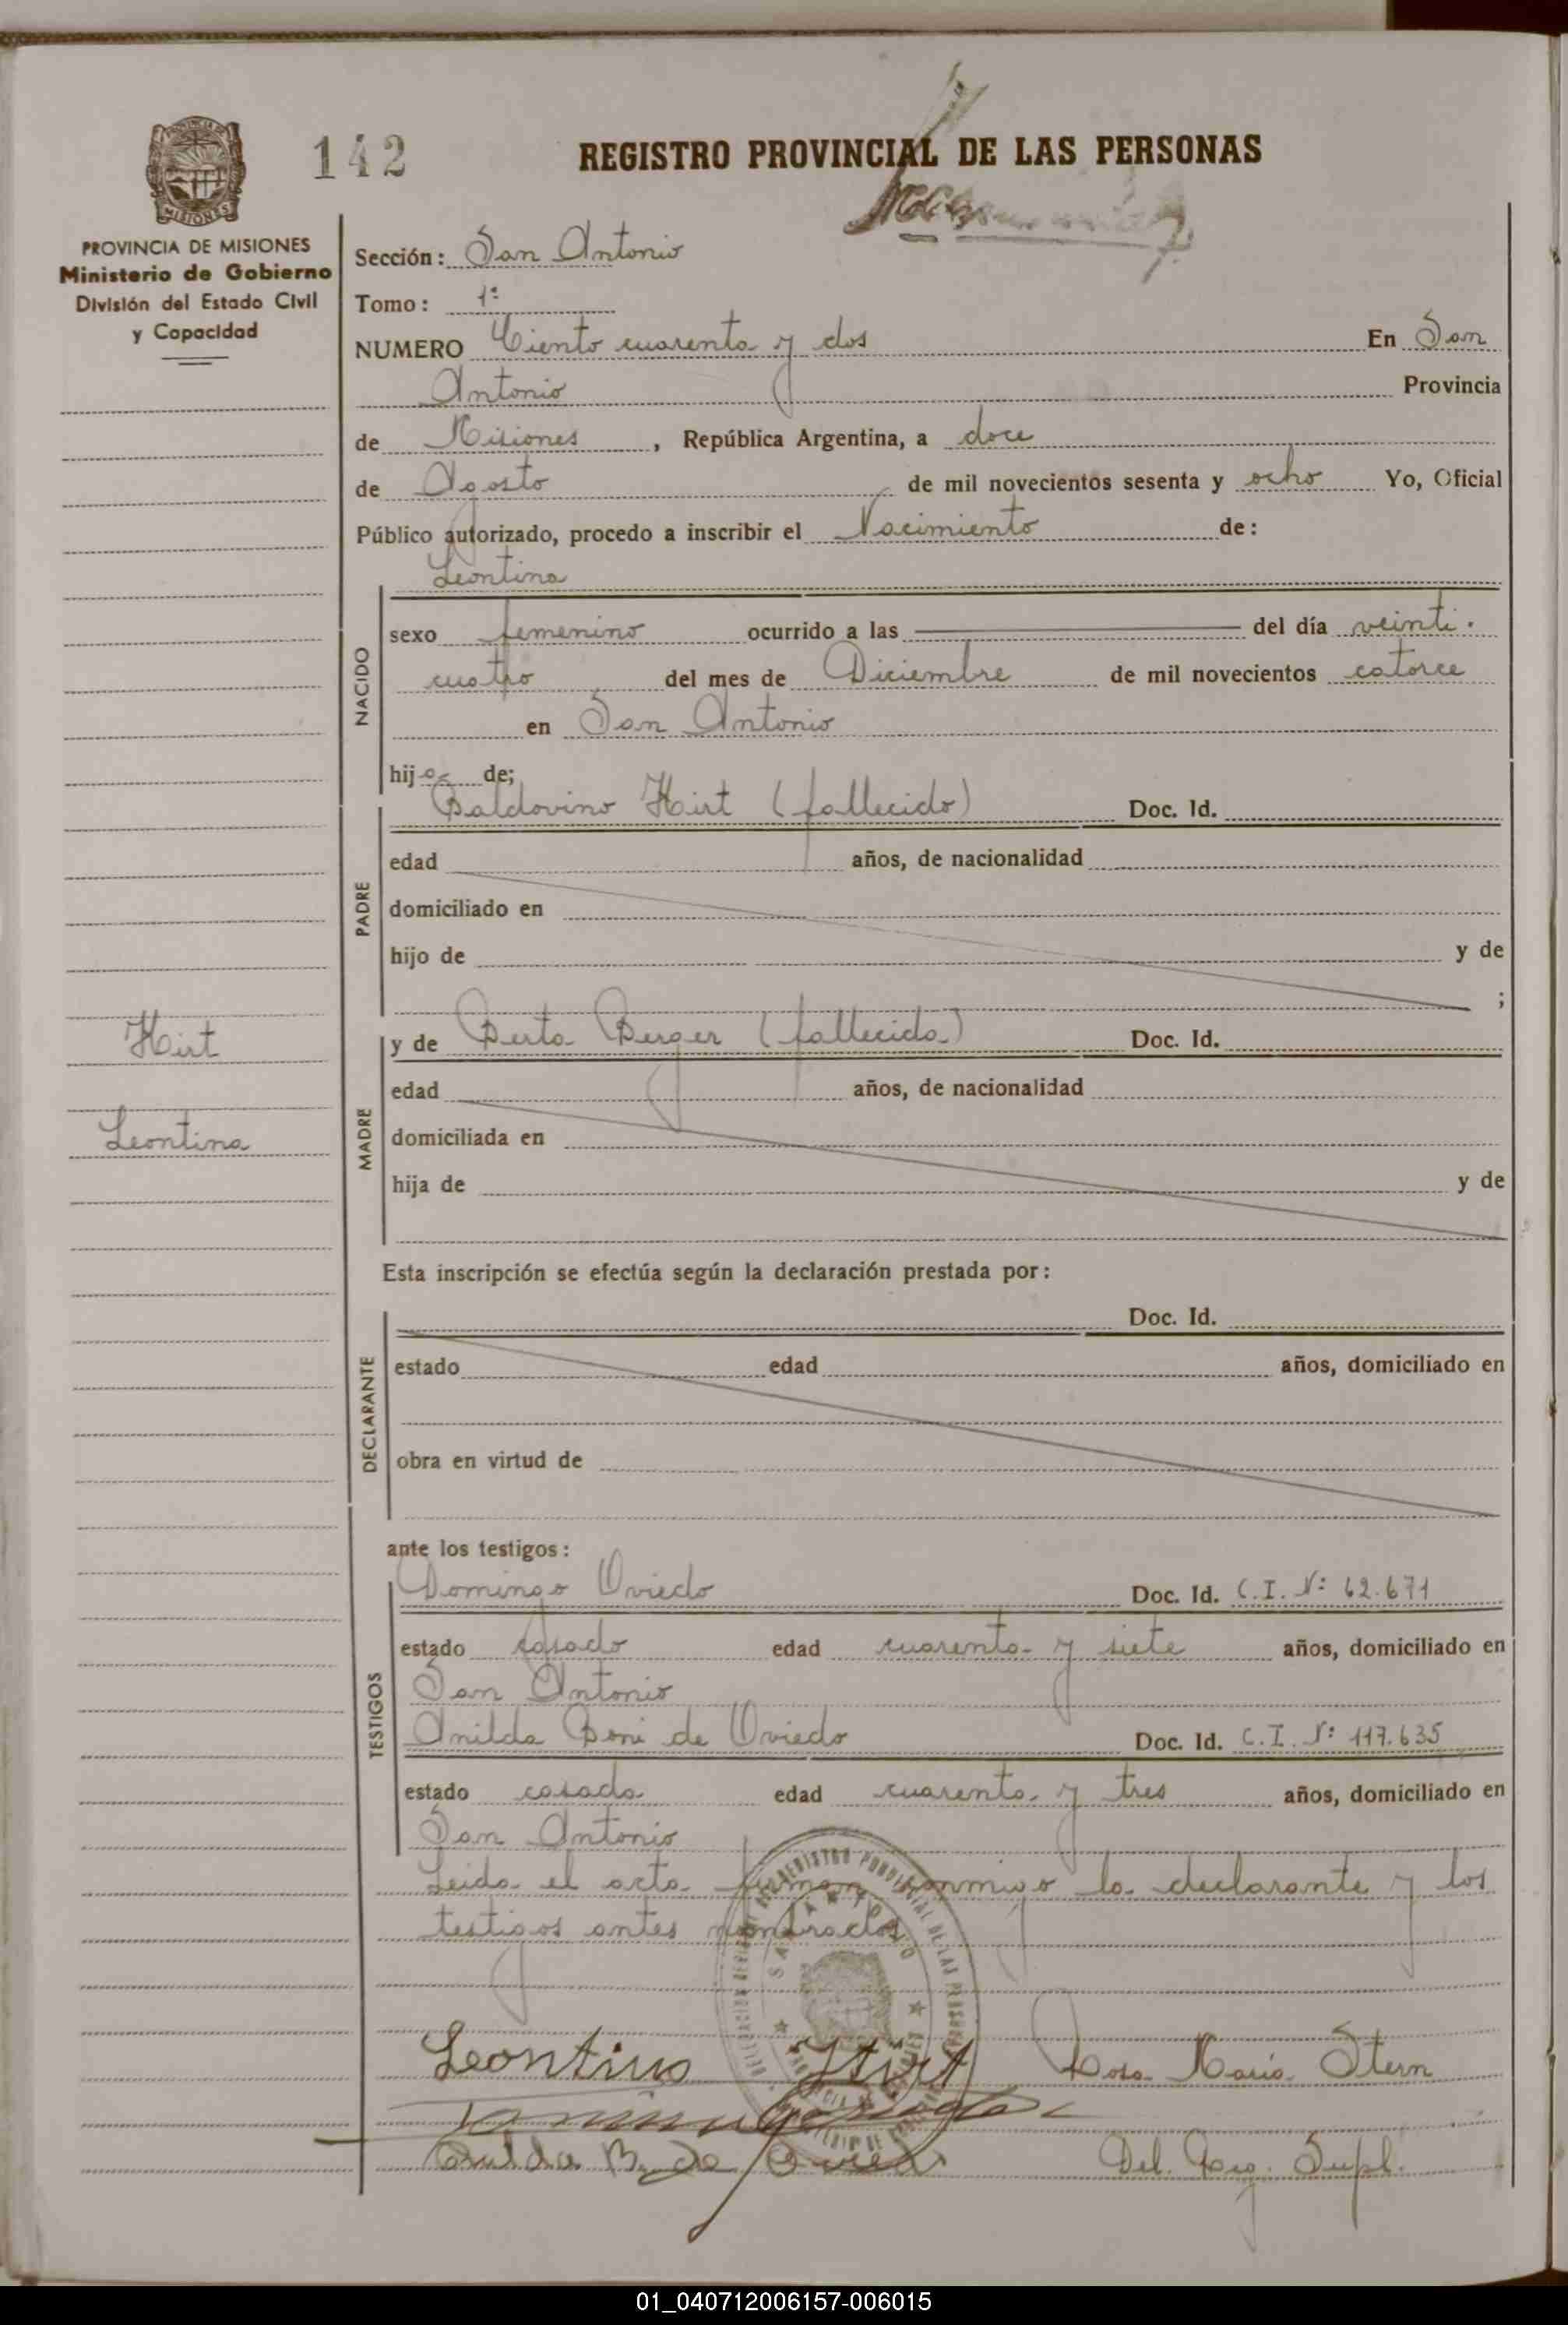 142
REGISTRO PROVINCIAL DE LAS PERSONAS
MISIONES
PROVINCIA DE MISIONES
Ministerio de Gobierno
División del Estado Civil
y Capacidad
Sección: San Antonio
Tomo: 1º
NUMERO Ciento cuarenta y dos En San
Antonio Provincia
de Misiones, República Argentina, a doce
de Agosto de mil novecientos sesenta y ocho Yo, Oficial
Público autorizado, procedo a inscribir el Nacimiento de:
Leontina
NACIDO
sexo femenino ocurrido a las ——— del día veinti-
cuatro del mes de Diciembre de mil novecientos catorce
en San Antonio
hija de;
PADRE
Baldovino Hirt (fallecido) Doc. Id.
edad años, de nacionalidad
domiciliado en
hijo de y de
;
Hirt
Leontina
MADRE
y de Berta Berger (fallecida) Doc. Id.
edad años, de nacionalidad
domiciliada en
hija de y de
Esta inscripción se efectúa según la declaración prestada por:
DECLARANTE
Doc. Id.
estado edad años, domiciliado en
obra en virtud de
ante los testigos:
TESTIGOS
Domingo Oviedo Doc. Id. C.I. Nº 62.671
estado casado edad cuarenta y siete años, domiciliado en
San Antonio
Anilda Boni de Oviedo Doc. Id. C.I. Nº 117.635
estado casada edad cuarenta y tres años, domiciliado en
San Antonio
Leida el acta firman conmigo la declarante y los
testigos antes nombrados
SAN ANTONIO
Leontina Hirt Rosa María Stern
B. de Oviedo Del. Reg. Supl.
01_040712006157-006015